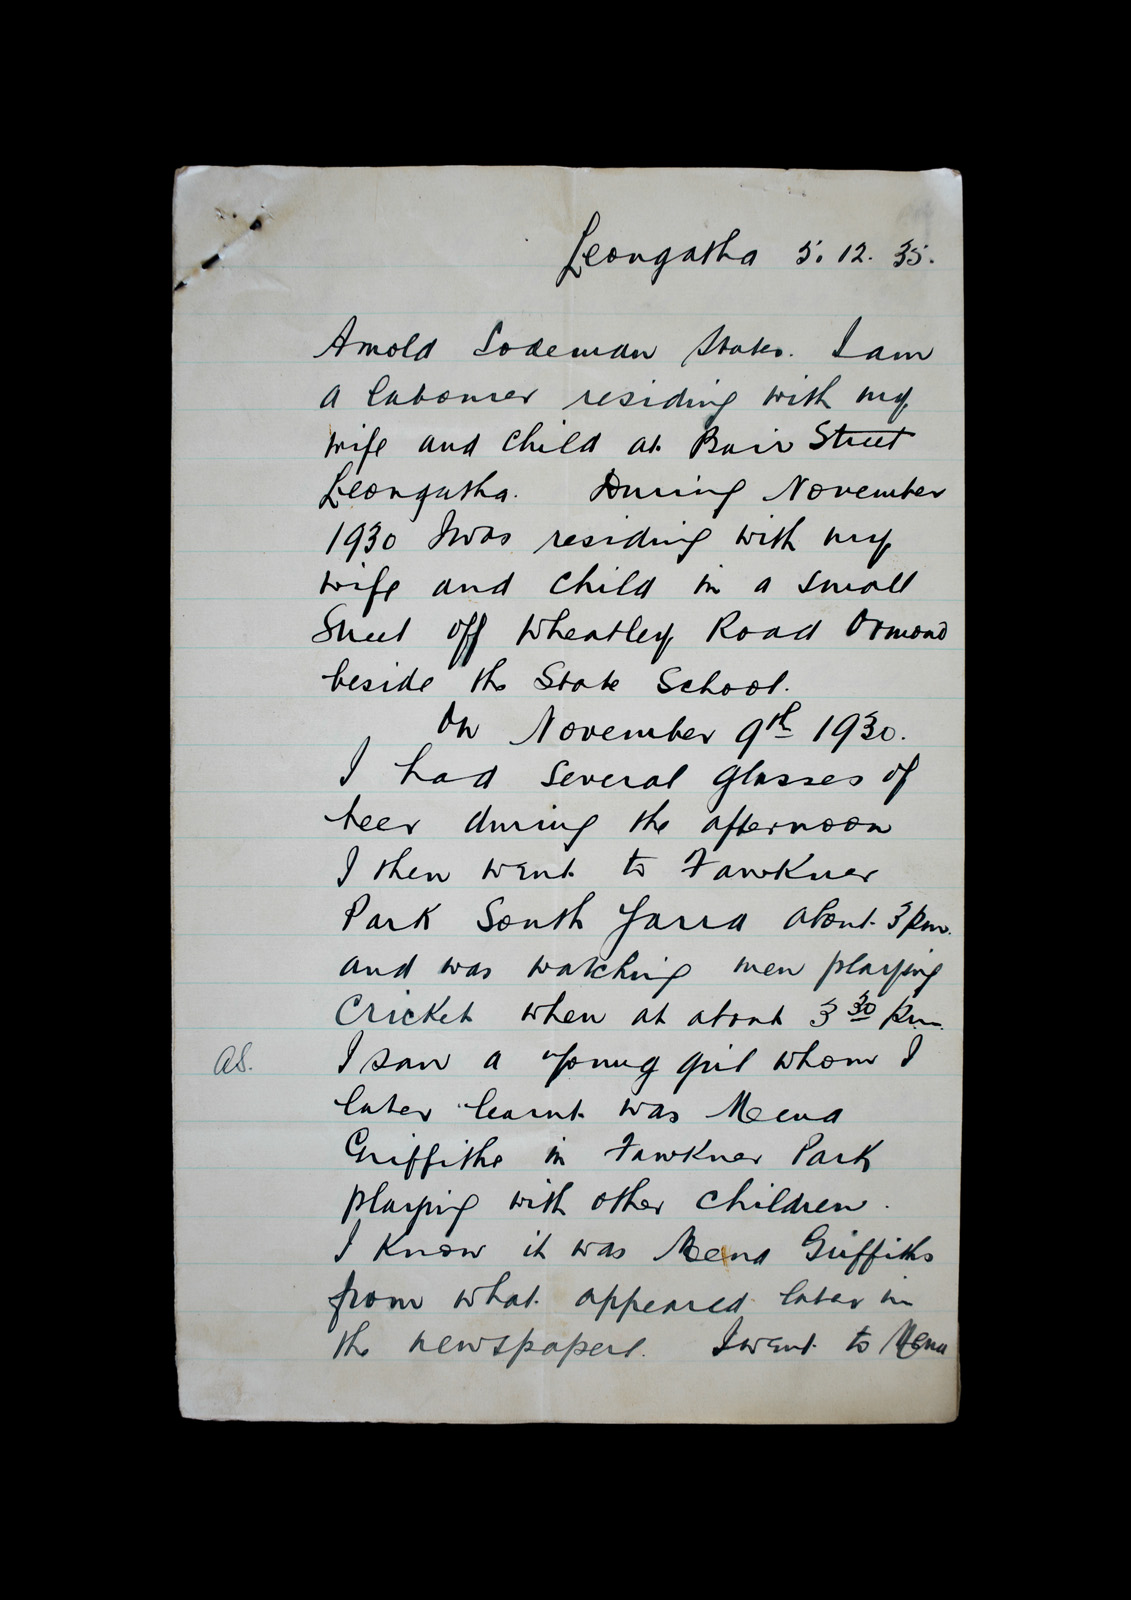 Leongatha 5.12.35.
Arnold Sodeman states. I am
a labourer residing with my
wife and child at Bair Street
Leongatha. During November
1930 I was residing with my
wife and child in a small
Street off Wheatley Road Ormond
beside the State School.
On November 9th 1930.
I had several glasses of
beer during the afternoon
I then went to Fawkner
Park South Yarra about 3 pm.
and was watching men playing
Cricket when at about 3 30 pm.
AS. I saw a young girl whom I
later learnt was Mena
Griffiths in Fawkner Park
playing with other children.
I know it was Mena Griffiths
from what appeared later in
the newspapers. I went to Mena